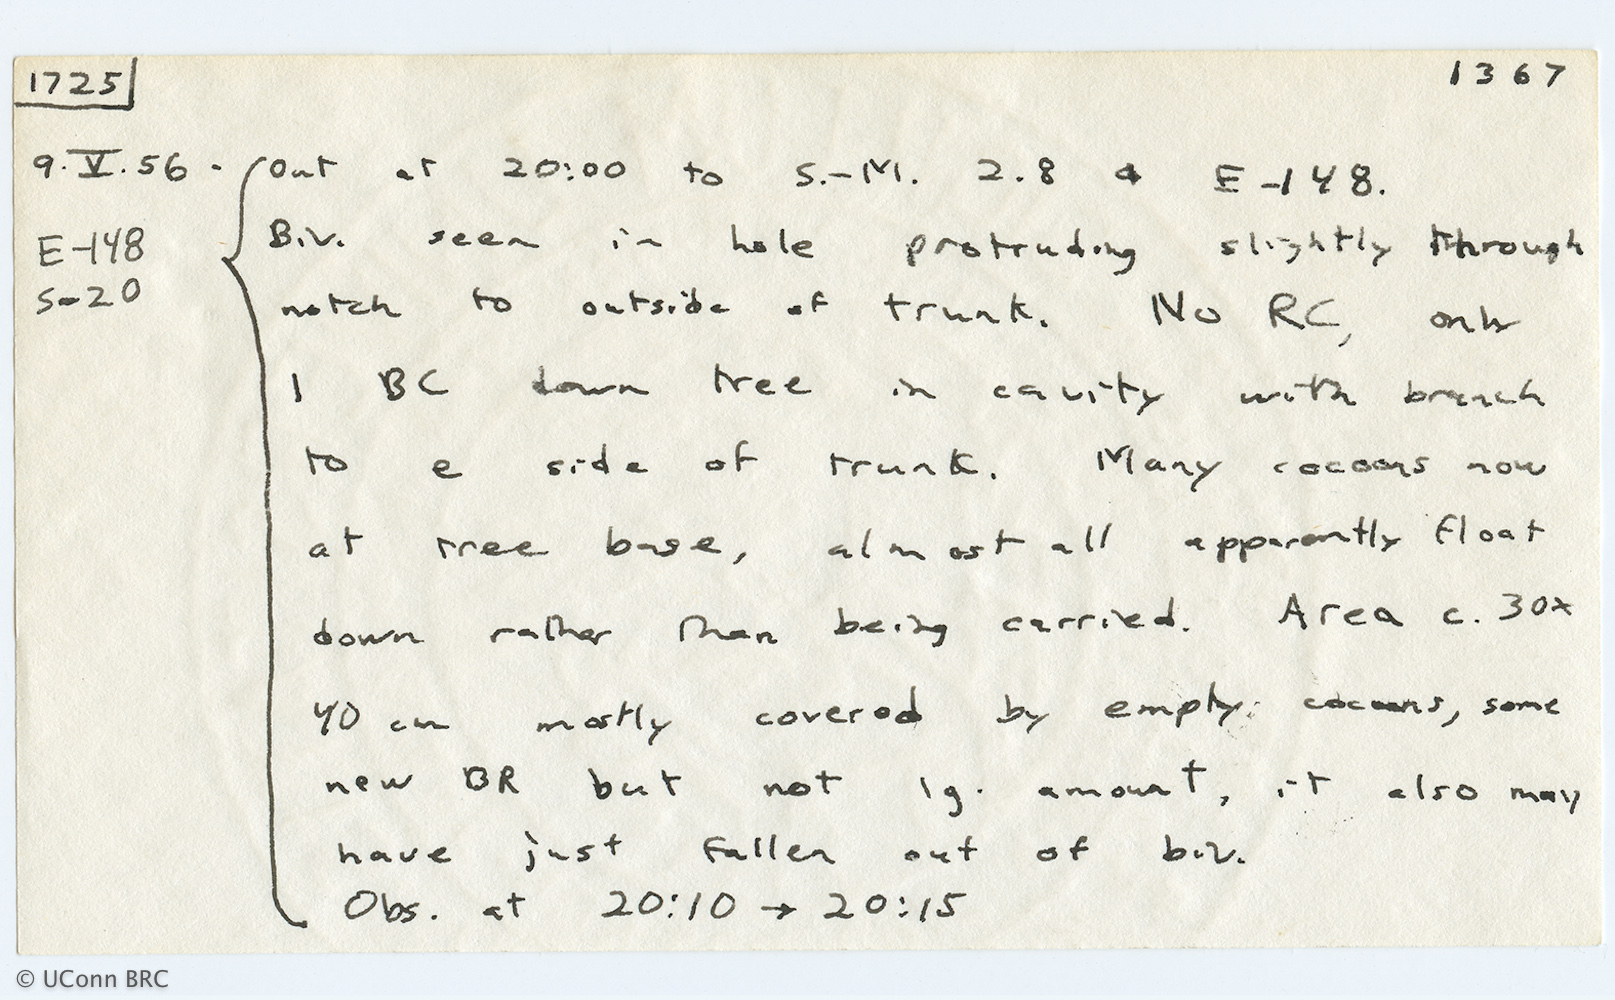 1725
1367
9.V.56. Out at 20:00 to S.-M. 2.8 & E-148.
E-148
S-20
Biv. seen in hole protruding slightly through
notch to outside of trunk. No RC, only
1 BC down tree in cavity with branch
to e side of trunk. Many cocoons now
at tree base, almost all apparently float
down rather than being carried. Area c. 30x
40 cm mostly covered by empty cocoons, some
new BR but not lg. amount, it also may
have just fallen out of biv.
Obs. at 20:10 → 20:15
© UConn BRC